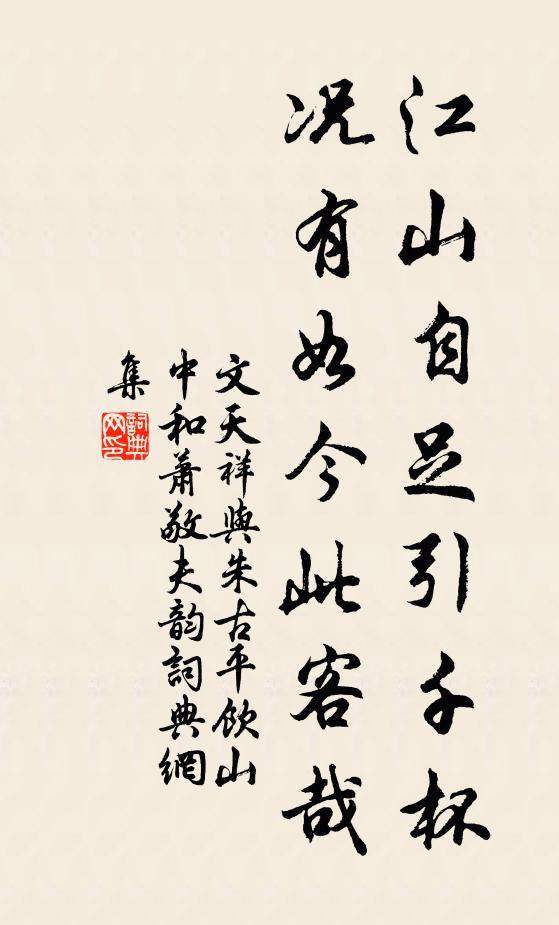 江山自足引千杯
况有如今此客哉
文天祥與朱古平飲山
中和萧敬夫韵詞典網
集
詞典網印